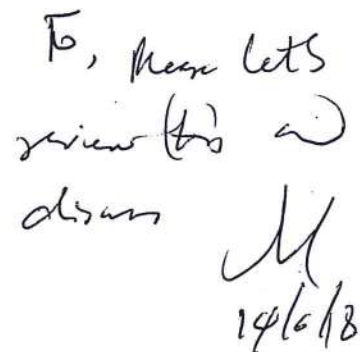 To, Please lets
review this and
discuss
M
14/6/18